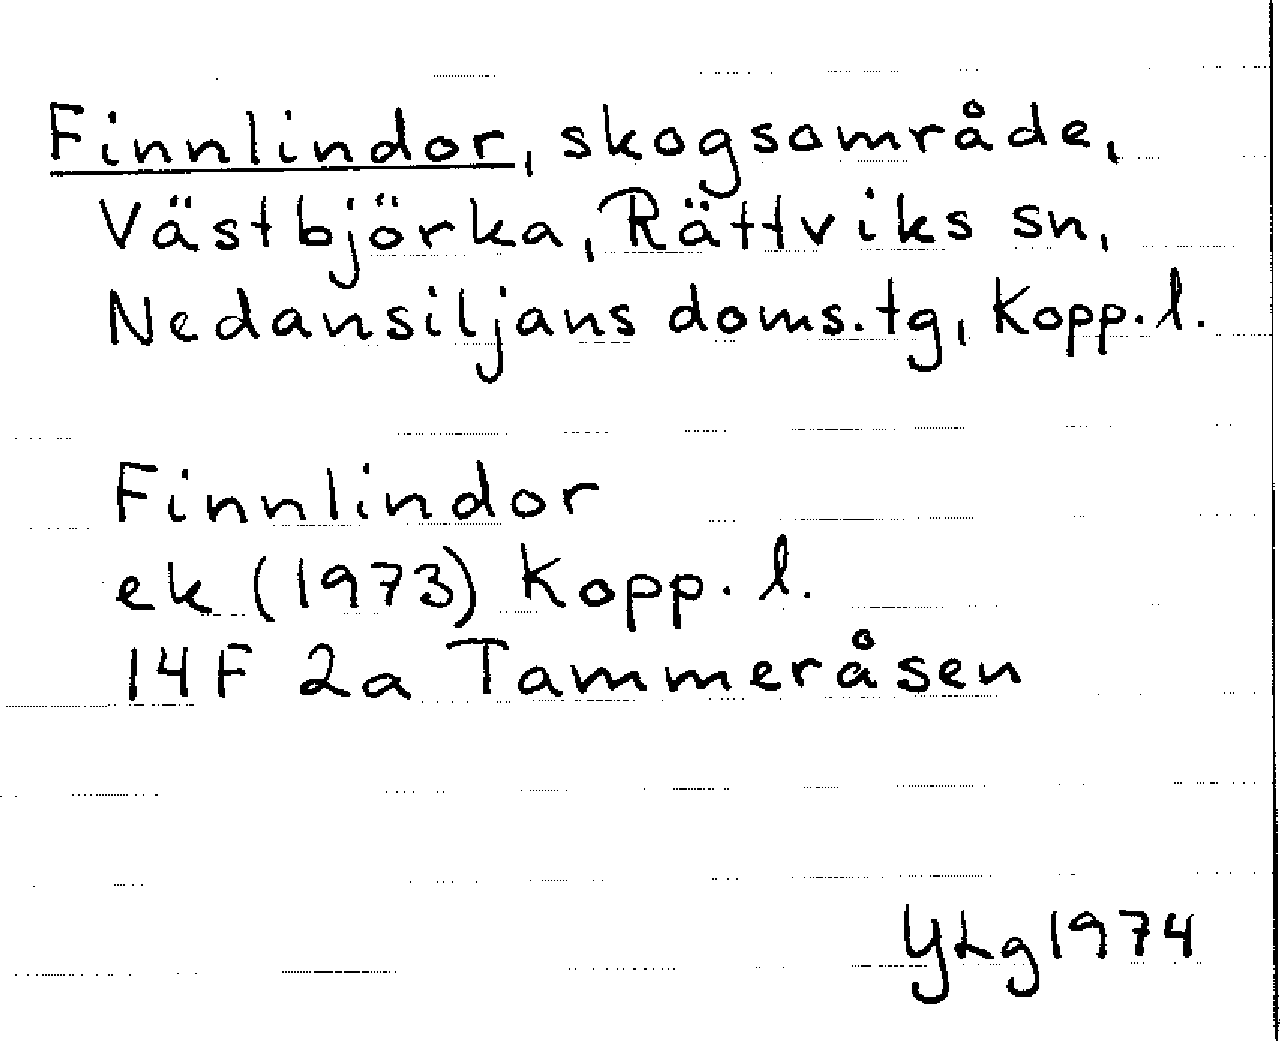 Finnlindor, skogsområde,
Västbjörka, Rättviks sn,
Nedansiljans doms.tg, Kopp.l.
Finnlindor
ek (1973) Kopp. l.
14F 2a Tammeråsen
YLg 1974